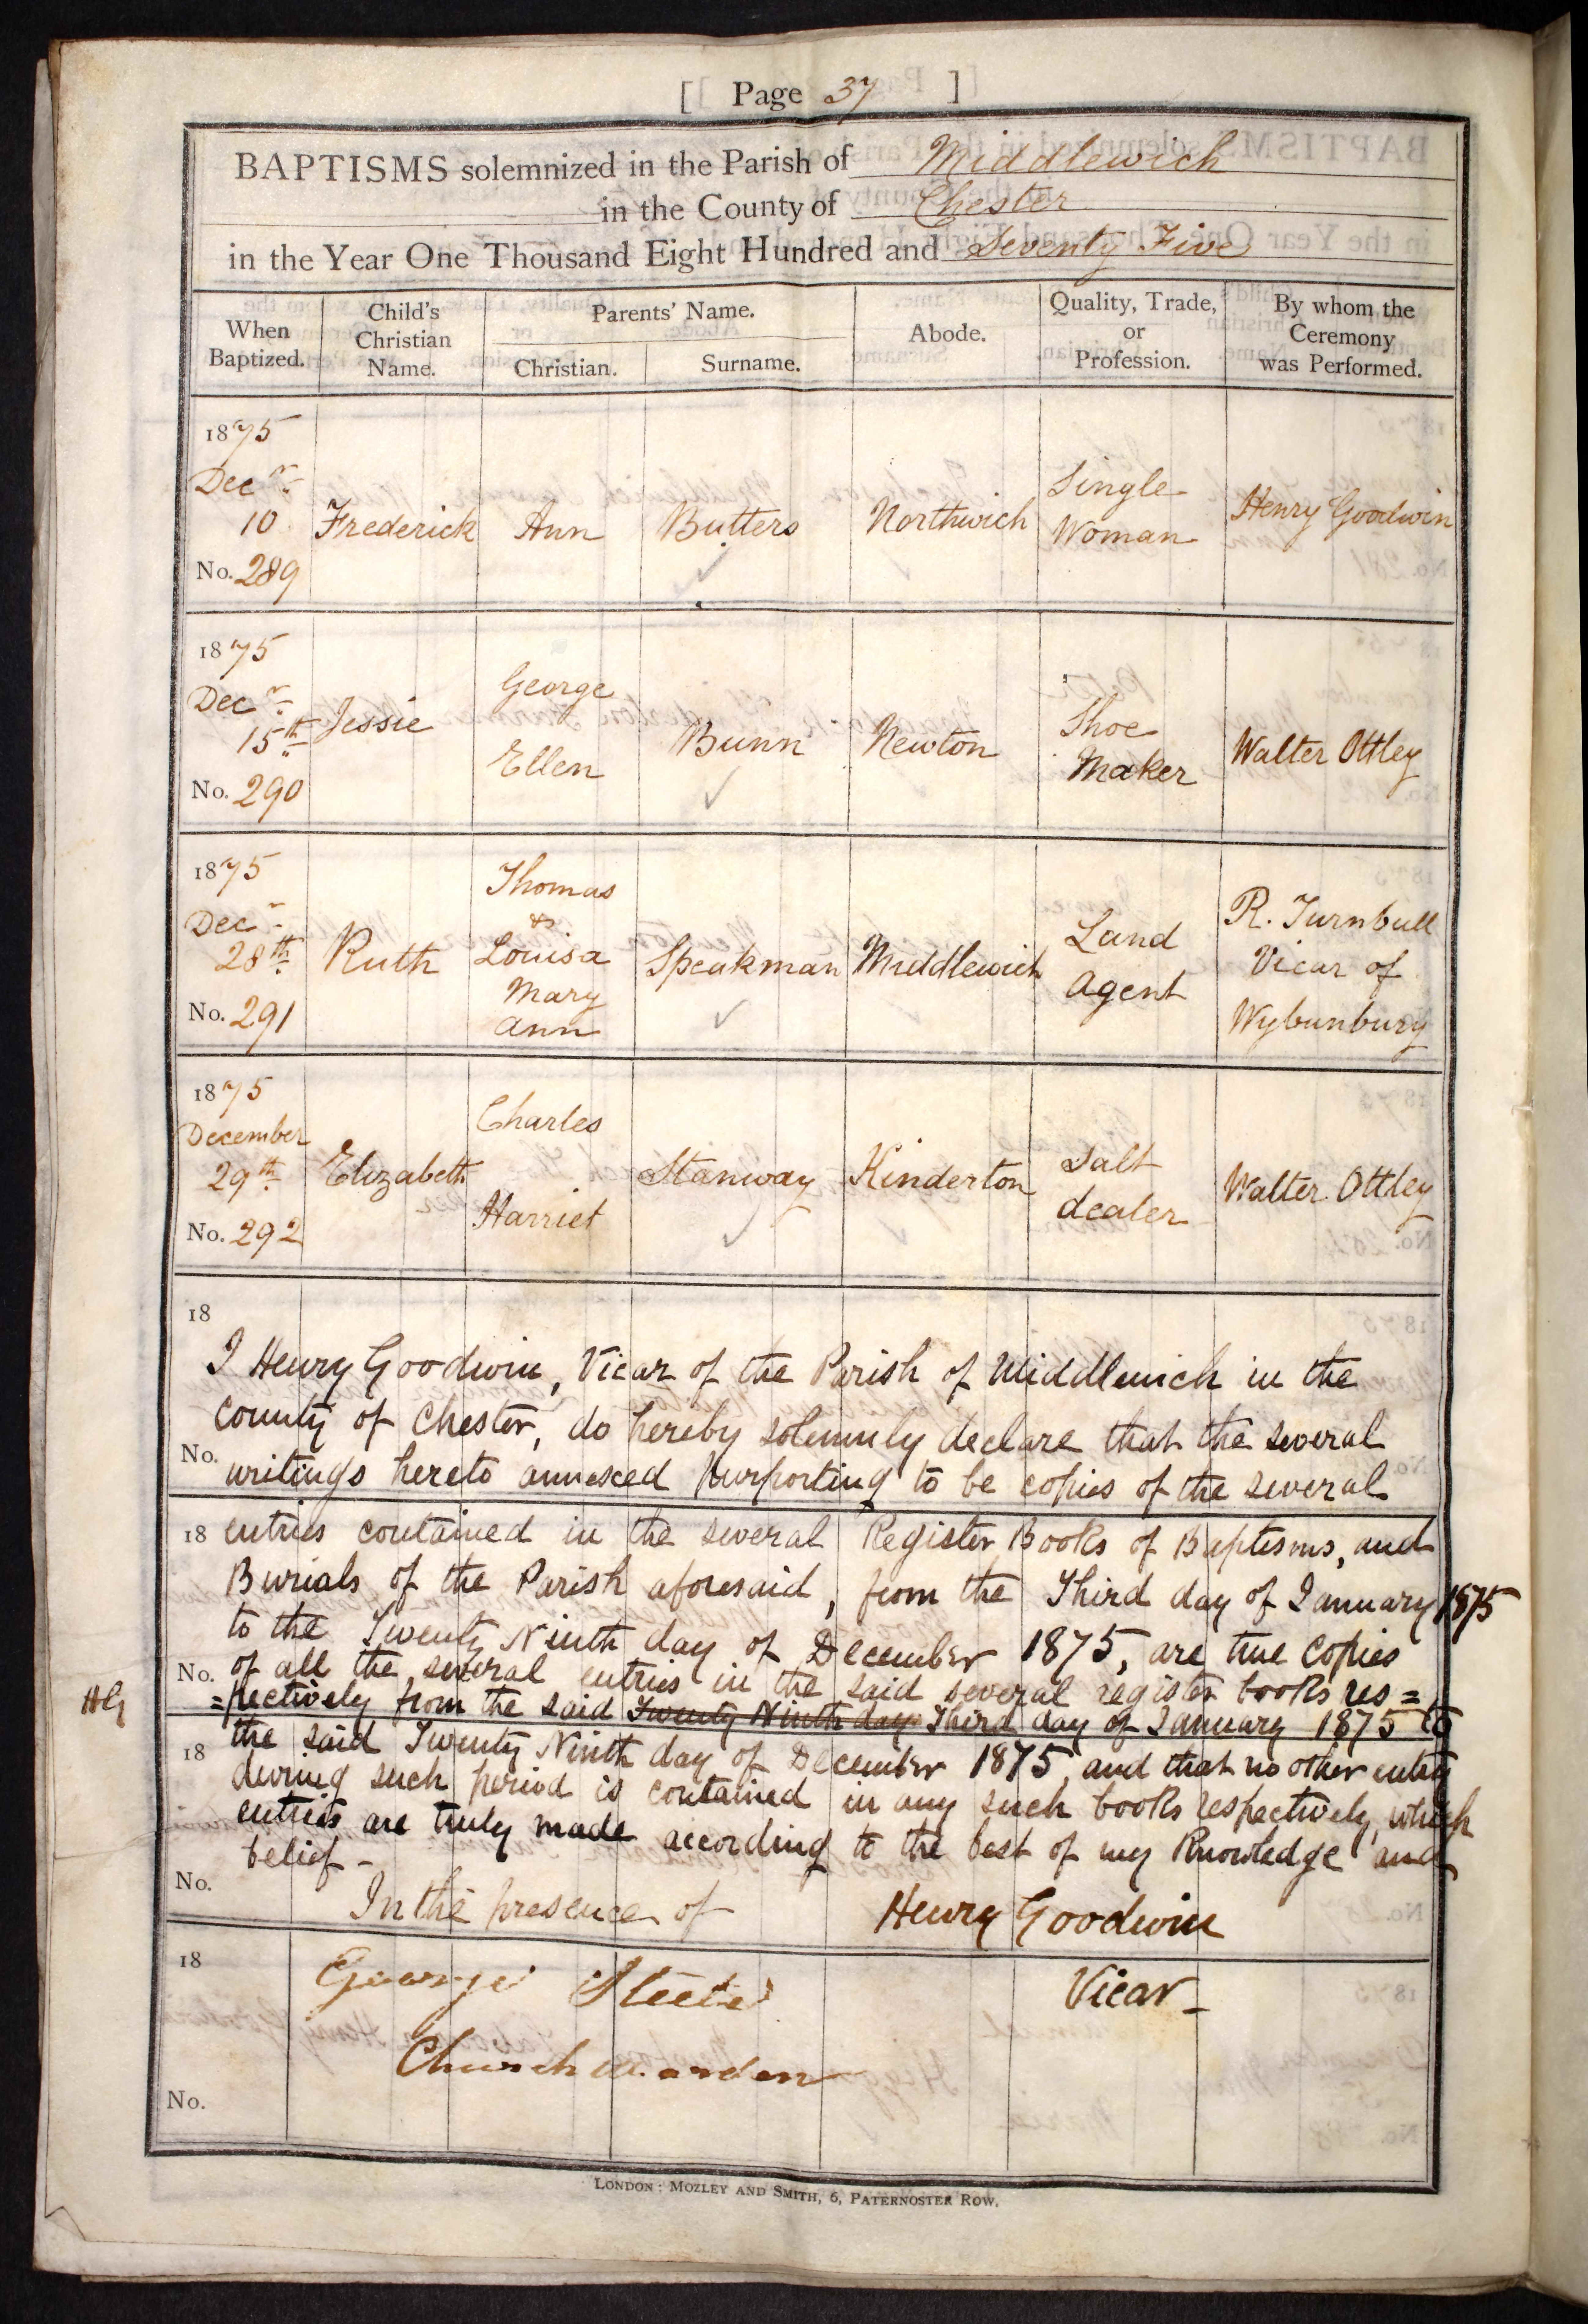 [ Page 37 ]
BAPTISMS solemnized in the Parish of Middlewich
in the County of Chester
in the Year One Thousand Eight Hundred and Seventy Five
When Baptized. Child's Christian Name. Parents' Name. Christian. Surname. Abode. Quality, Trade, or Profession. By whom the Ceremony was Performed.
1875
Decr
10 Frederick Ann Butters Northwich Single Woman Henry Goodwin
No. 289
1875
Decr
15th Jessie George Ellen Bunn Newton Shoe Maker Walter Ottley
No. 290
1875
Decr
28th Ruth Thomas & Louisa Mary Ann Speakman Middlewich Land Agent R. Turnbull Vicar of Wybunbury
No. 291
1875
December
29th Elizabeth Charles Harriet Stanway Kinderton Salt dealer Walter Ottley
No. 292
18
I Henry Goodwin, Vicar of the Parish of Middlewich in the
County of Chester, do hereby solemnly declare that the several
No. writings hereto annexed purporting to be copies of the several
18 entries contained in the several Register Books of Baptisms, and
Burials of the Parish aforesaid, from the Third day of January 1875
to the Twenty Ninth day of December 1875, are true Copies
No. of all the several entries in the said several register books res=
HG =pectively from the said Twenty Ninth day Third day of January 1875 to
18 the said Twenty Ninth day of December 1875, and that no other entry
during such period is contained in any such books respectively, which
entries are truly made according to the best of my Knowledge and
belief -
No.
In the presence of Henry Goodwin
18 George Steele Vicar
Churchwarden
No.
LONDON: MOZLEY AND SMITH, 6, PATERNOSTER ROW.